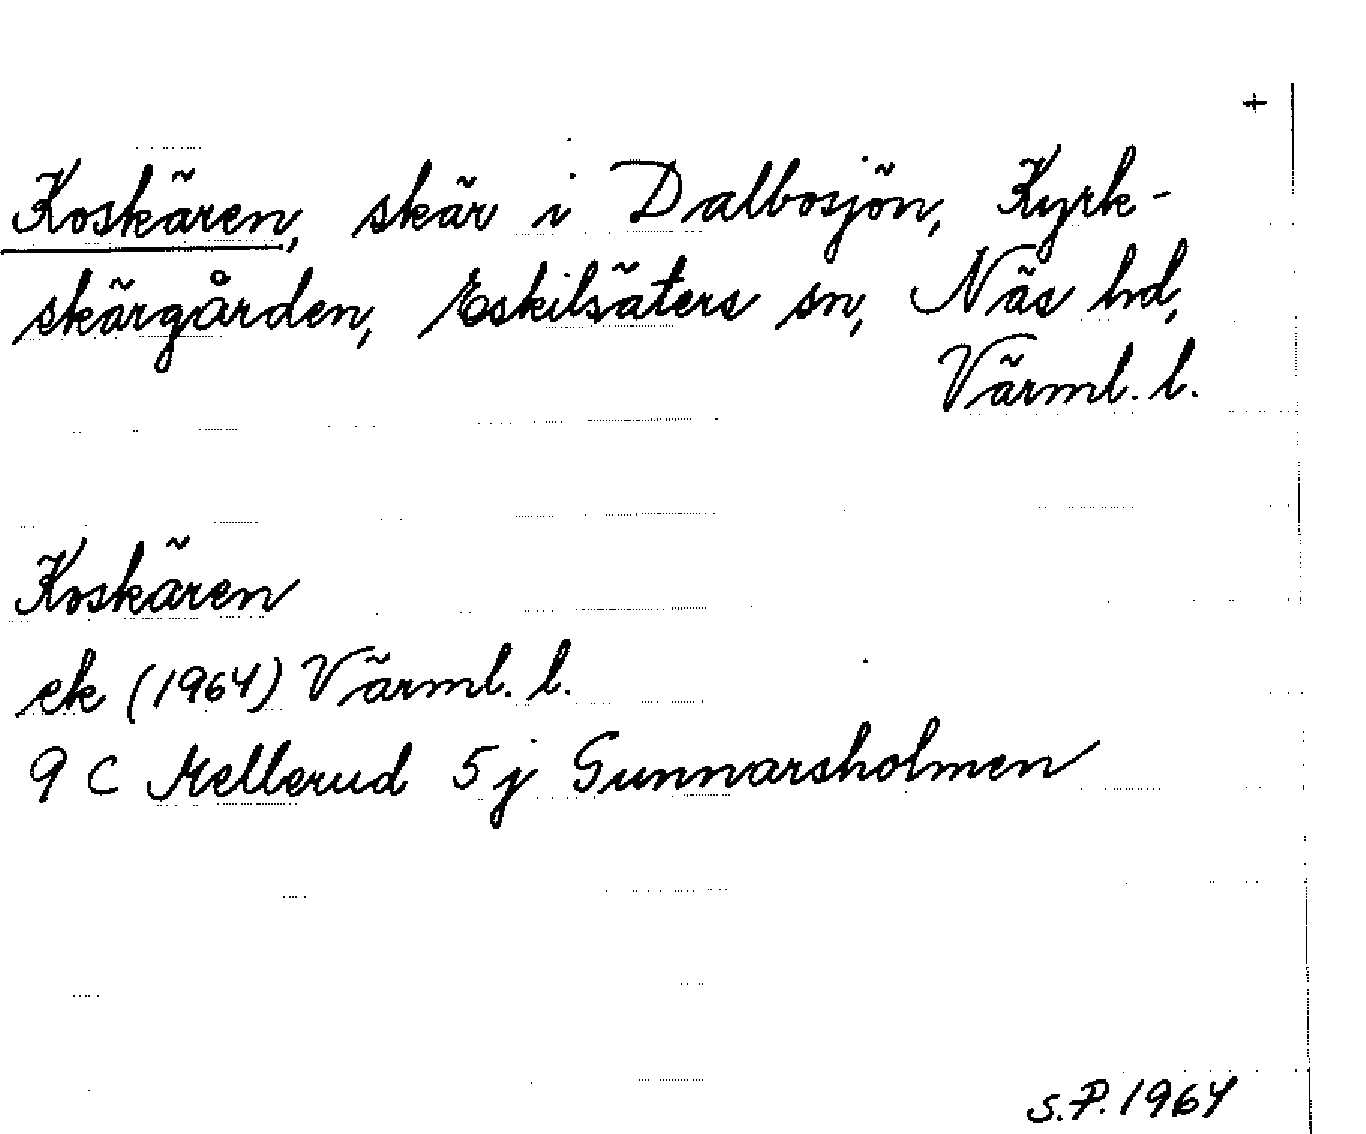 +
Koskären, skär i Dalbosjön, Kyrk-
skärgården, Eskilsäters sn, Näs hd,
Värml. l.
Koskären
ek (1964) Värml. l.
9 C Mellerud 5 j Gunnarsholmen
S.P. 1964